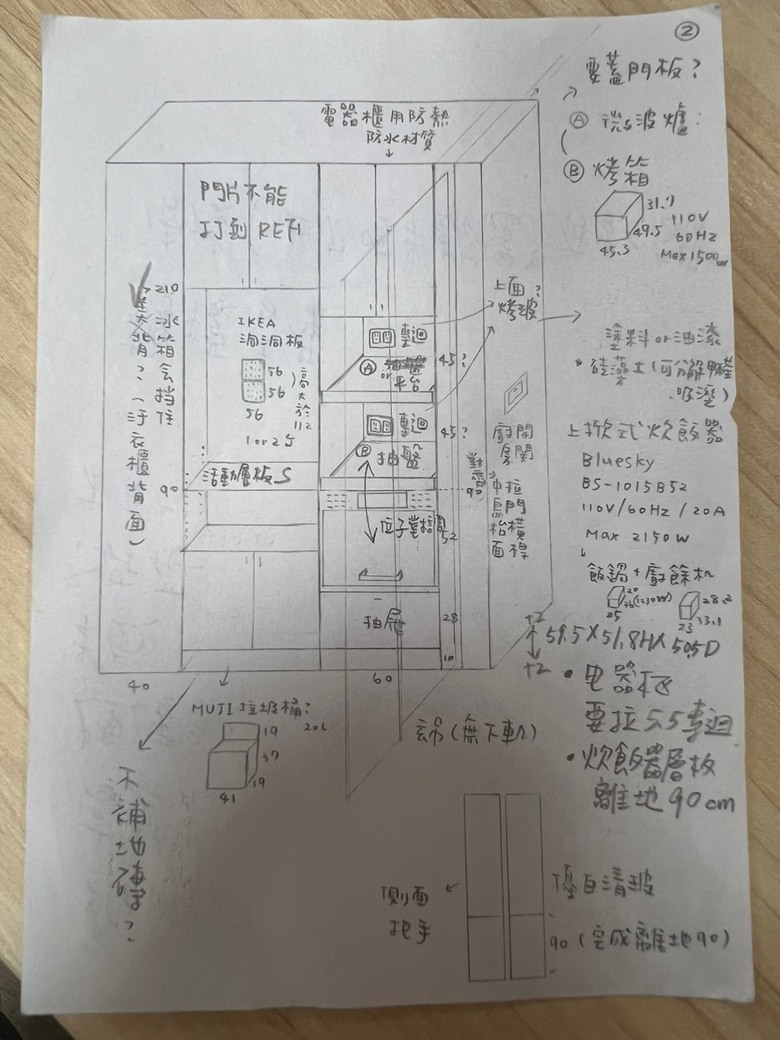 ②
要蓋門板?
Ⓐ 微波爐:
Ⓑ 烤箱
31.7
49.5
45.3
110V
60Hz
Max 1500w
電器櫃用防熱
防水材質
門片不能
打到 REF1
210
冰箱會擋住
背?(浮衣櫃背面)
IKEA
洞洞板
56
56
56
高大於
112
1 or 2片
上面?
烤玻
迴
Ⓐ
or
平台
45?
迴
Ⓑ
抽盤
45?
塗料 or 油漆
* 硅藻土(可分解甲醛
吸溼)
廚房
開關
拉門橫桿
中島枱面
上掀式炊飯器
Bluesky
BS-1015B52
110V/60Hz/20A
Max 2150W
飯鍋+廚餘機
25
28.2
23
33.1
活動層板
90
90
52
抽屜
28
10
+2
+2
59.5×51.8H×50.5D
40
60
MUJI垃圾桶?
20L
19
37
19
41
(無下動)
• 电器柜
要拉5.5專迴
• 炊飯器層板
離地90cm
不補地磚?
側面
把手
優白清玻
90(完成離地90)